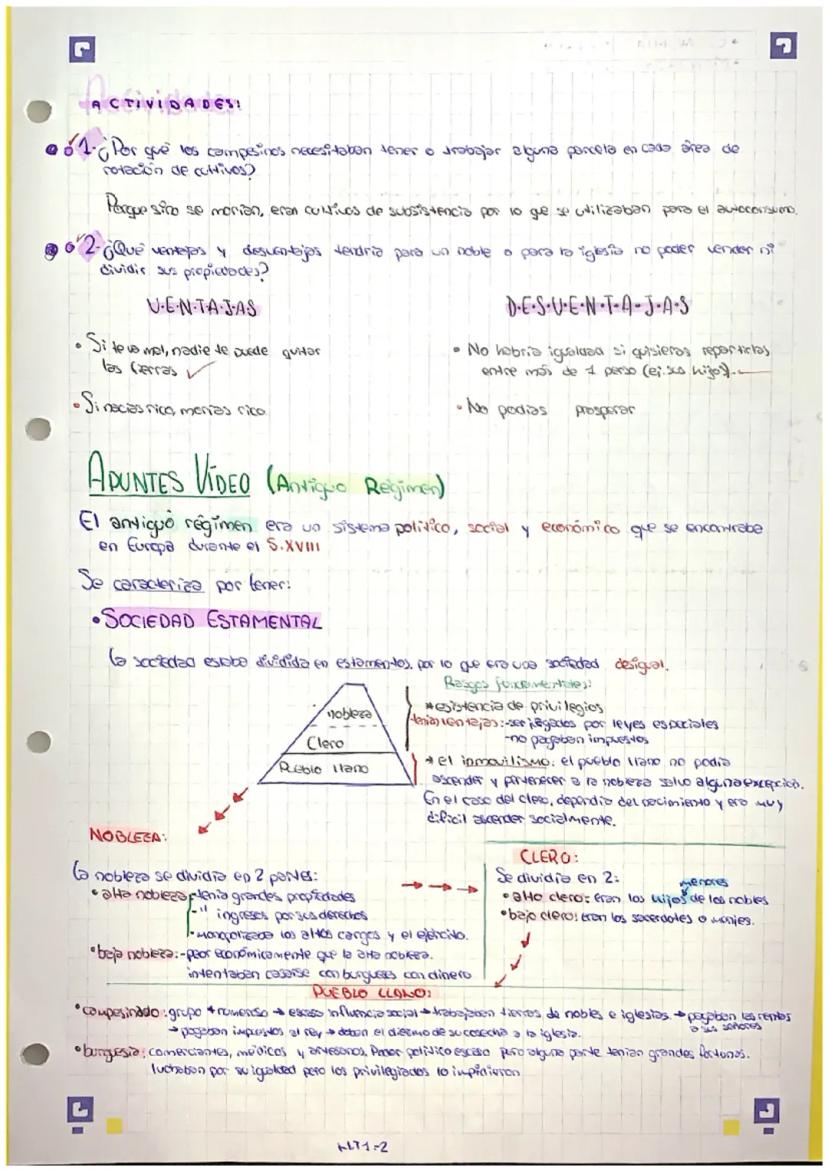 ACTIVIDADES:
1. ¿Por qué los campesinos necesitaban tener o trabajar alguna parcela en cada área de
rotación de cultivos?
Porque sino se morían, eran cultivos de subsistencia por lo que se utilizaban para el autoconsumo.
2. ¿Qué ventajas y desventajas tendría para un noble o para la iglesia no poder vender ni
dividir sus propiedades?
V·E·N·T·A·J·A·S
• Si te va mal, nadie te puede quitar
las tierras
• Si nacías rico, morías rico
D·E·S·V·E·N·T·A·J·A·S
• No habría igualdad si quisieras repartirlas
entre más de 1 perso (ej. sus hijos).
• No podías prosperar
APUNTES VÍDEO (Antiguo Régimen)
El antiguo régimen era un sistema político, social y económico que se encontraba
en Europa durante el S.XVIII
Se caracteriza por tener:
• SOCIEDAD ESTAMENTAL
La sociedad estaba dividida en estamentos, por lo que era una sociedad desigual.
nobleza
Clero
Pueblo llano
Rasgos fundamentales:
*existencia de privilegios
-tenían ventajas:-ser juzgados por leyes especiales
-no pagaban impuestos
* el inmovilismo: el pueblo llano no podía
ascender y pertenecer a la nobleza salvo alguna excepción.
En el caso del clero, dependía del nacimiento y era muy
difícil ascender socialmente.
NOBLEZA:
La nobleza se dividía en 2 partes:
• alta nobleza -tenía grandes propiedades
-" ingresos por sus derechos
los altos cargos y el ejército.
• baja nobleza:-peor económicamente que la alta nobleza.
intentaban casarse con burgueses con dinero
CLERO:
Se dividía en 2:
menores
• alto clero: eran los hijos de los nobles
• bajo clero: eran los sacerdotes o monjes.
PUEBLO LLANO:
• campesinado: grupo + numeroso → escasa influencia social → trabajaban tierras de nobles e iglesias. → pagaban las rentas
a sus señores
→ pagaban impuestos al rey → daban el diezmo de su cosecha a la iglesia.
• burguesía: comerciantes, médicos y artesanos. Poder político escaso pero alguna parte tenían grandes fortunas.
luchaban por su igualdad pero los privilegiados lo impidieron